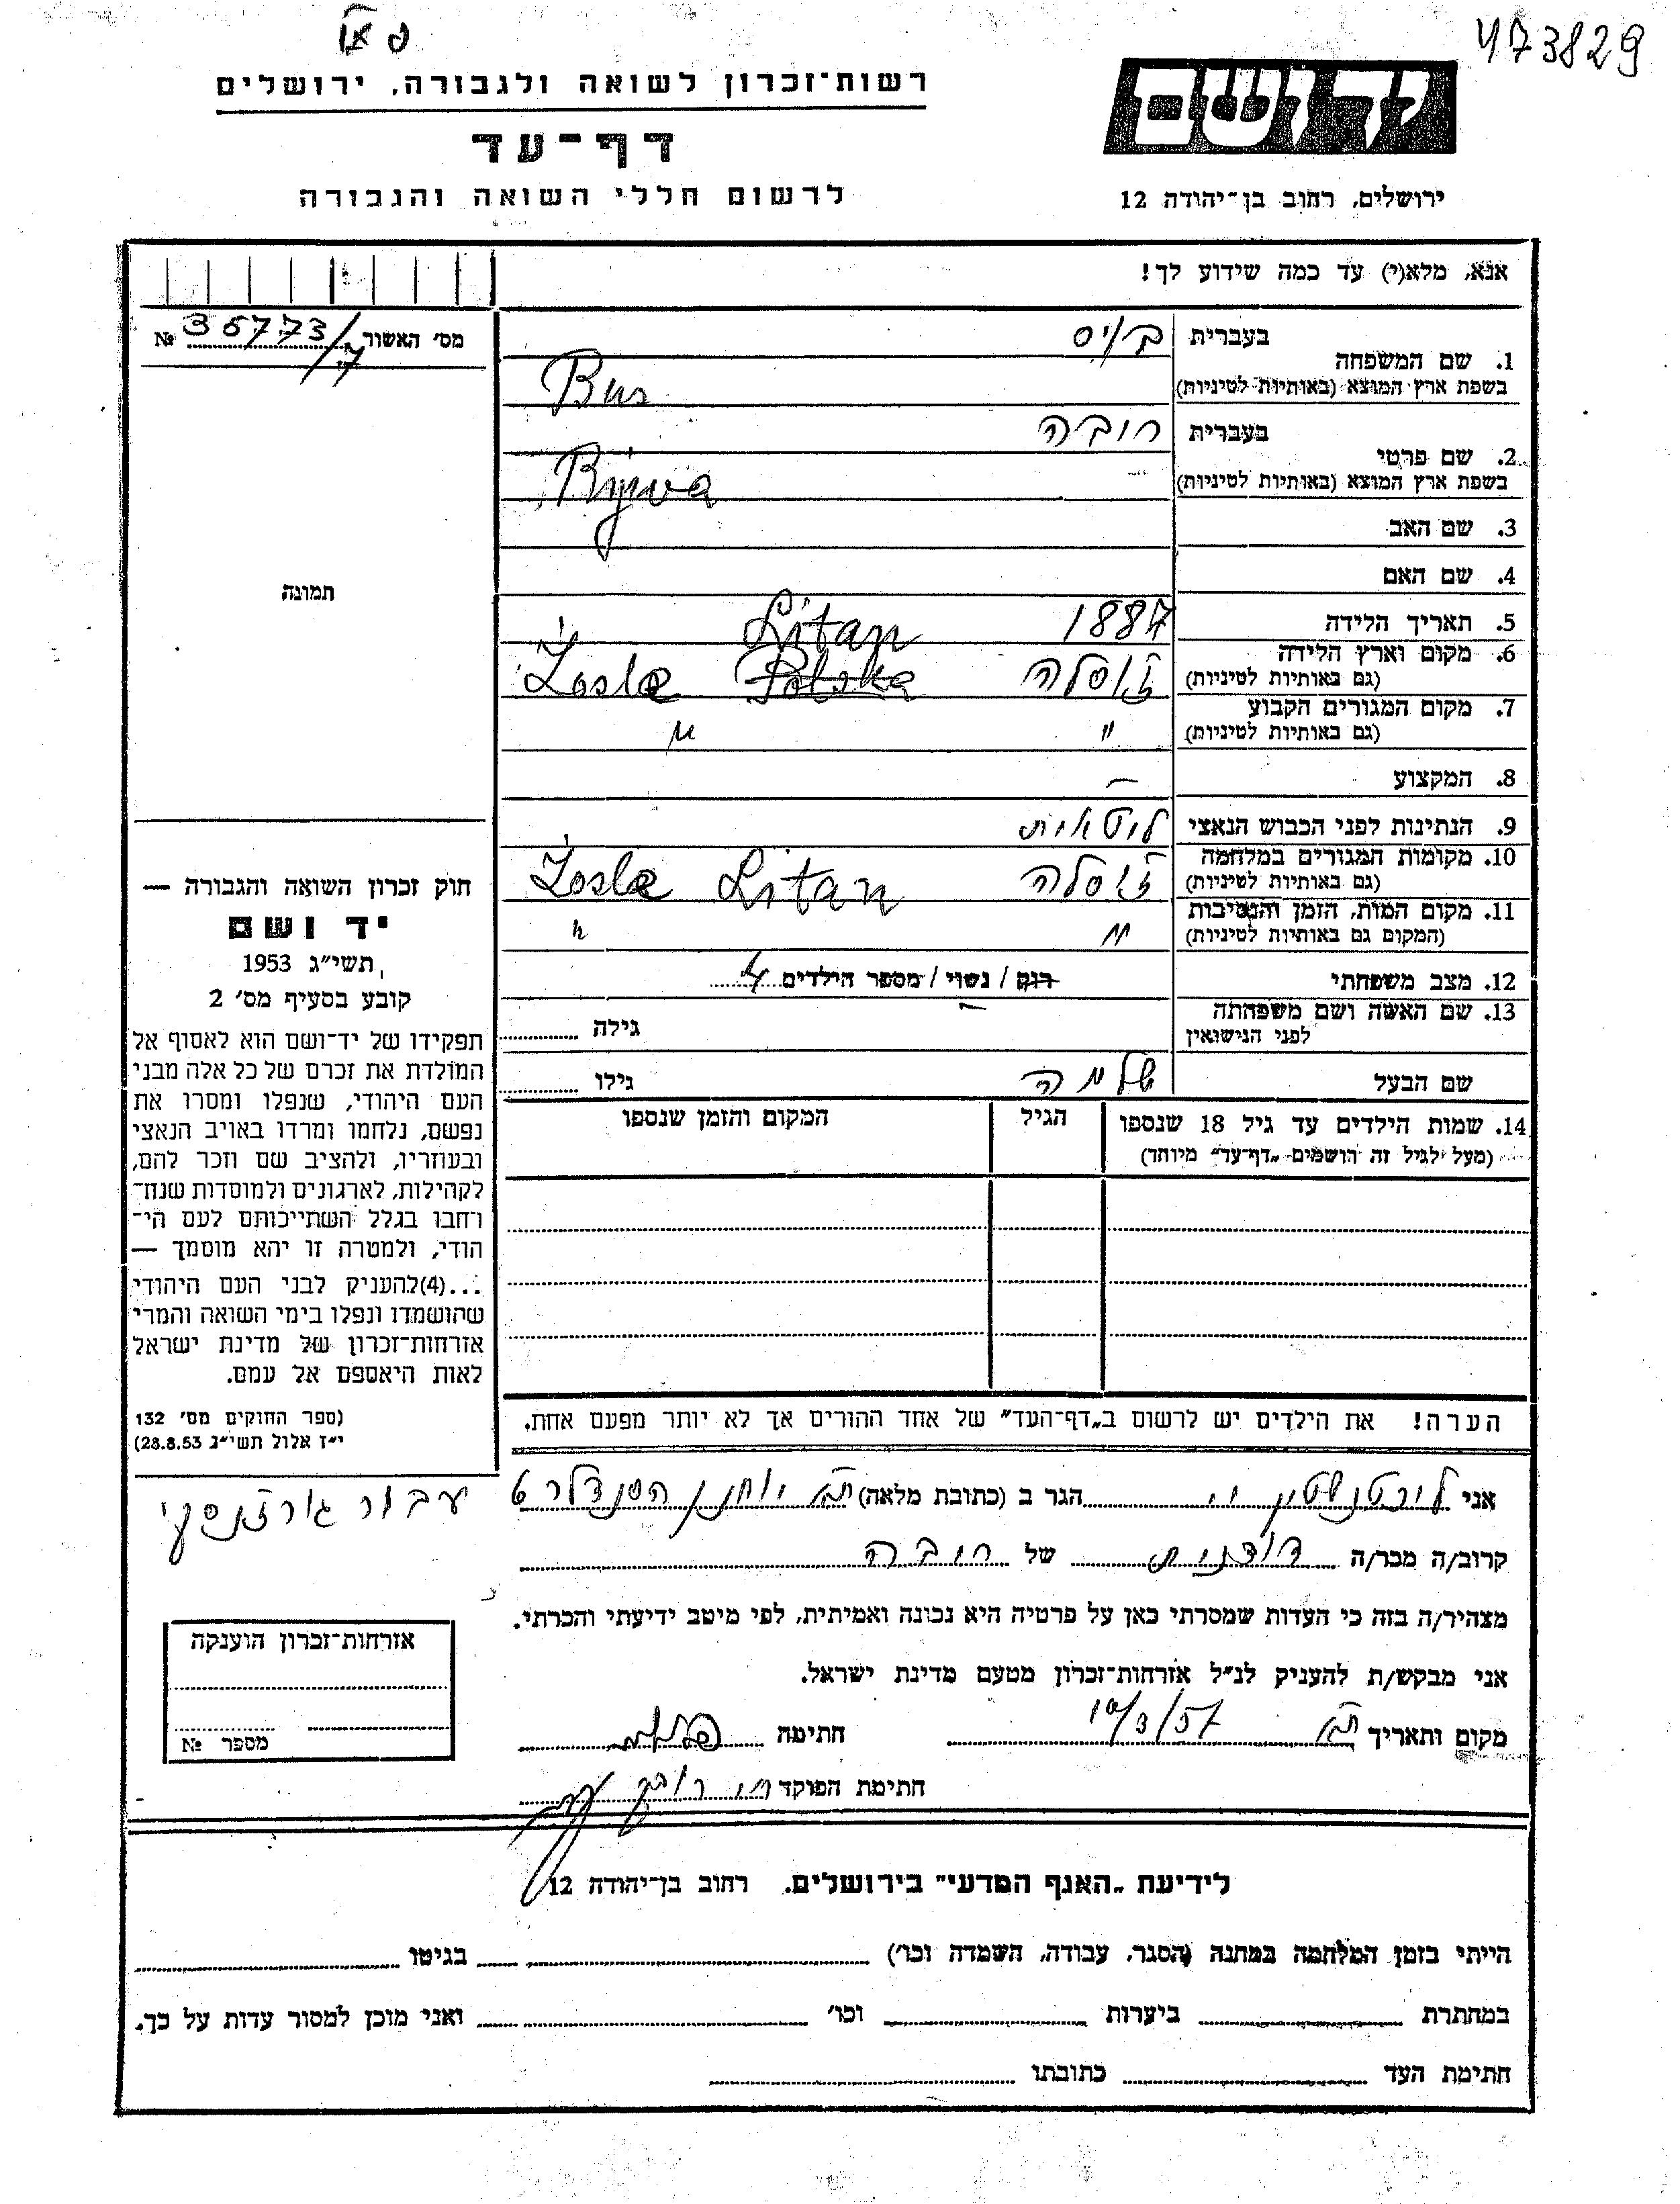 473829
יד ושם
ירושלים, רחוב בן־יהודה 12
רשות־זכרון לשואה ולגבורה, ירושלים
דף־עד
לרשום חללי השואה והגבורה
אנא, מלא(י) עד כמה שידוע לך!
1. שם המשפחה בעברית
בשפת ארץ המוצא (באותיות לטיניות) Bur
2. שם פרטי בעברית ריבה
בשפת ארץ המוצא (באותיות לטיניות) Ryjva
3. שם האב
4. שם האם
5. תאריך הלידה 1887
6. מקום וארץ הלידה
(גם באותיות לטיניות) זוסלה Litan Polska Żosle
7. מקום המגורים הקבוע
(גם באותיות לטיניות) " "
8. המקצוע –
9. הנתינות לפני הכבוש הנאצי ליטאית
10. מקומות המגורים במלחמה
(גם באותיות לטיניות) זוסלה Litan Żosle
11. מקום המות, הזמן והנסיבות
(המקום גם באותיות לטיניות) " "
12. מצב משפחתי רוק / נשוי / מספר הילדים 4
13. שם האשה ושם משפחתה
לפני הנישואין – גילה
שם הבעל שלמה גילו
14. שמות הילדים עד גיל 18 שנספו
(מעל לגיל זה רושמים "דף־עד" מיוחד)
הגיל
המקום והזמן שנספו
הערה! את הילדים יש לרשום ב"דף־העד" של אחד ההורים אך לא יותר מפעם אחת.
מס' האשור 35773/7 №
תמונה
חוק זכרון השואה והגבורה —
יד ושם
תשי"ג 1953
קובע בסעיף מס' 2
תפקידו של יד־ושם הוא לאסוף אל
המולדת את זכרם של כל אלה מבני
העם היהודי, שנפלו ומסרו את
נפשם, נלחמו ומרדו באויב הנאצי
ובעוזריו, ולהציב שם וזכר להם,
לקהילות, לארגונים ולמוסדות שנח־
רחבו בגלל השתייכותם לעם הי־
הודי, ולמטרה זו יהא מוסמך —
...(4)להעניק לבני העם היהודי
שהושמדו ונפלו בימי השואה והמרי
אזרחות־זכרון של מדינת ישראל
לאות היאספם אל עמם.
(ספר החוקים מס' 132
י"ז אלול תשי"ג 28.8.53)
אני הגר ב (כתובת מלאה) ת"א יוחנן הסנדלר
קרוב/ה מכר/ה של ריבה
מצהיר/ה בזה כי העדות שמסרתי כאן על פרטיה היא נכונה ואמיתית, לפי מיטב ידיעתי והכרתי.
אני מבקש/ת להעניק לנ"ל אזרחות־זכרון מטעם מדינת ישראל.
מקום ותאריך ת"א חתימה
חתימת הפוקד
עבור
אזרחות־זכרון הוענקה
מספר №
לידיעת "האגף המדעי" בירושלים. רחוב בן־יהודה 12
הייתי בזמן המלחמה במחנה (הסגר, עבודה, השמדה וכו') בגיטו
במחתרת ביערות וכו' ואני מוכן למסור עדות על כך.
חתימת העד כתובתו